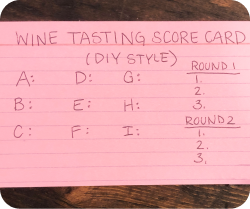 WINE TASTING SCORE CARD
(DIY STYLE)
A: D: G:
B: E: H:
C: F: I:
ROUND 1
1.
2.
3.
ROUND 2
1.
2.
3.